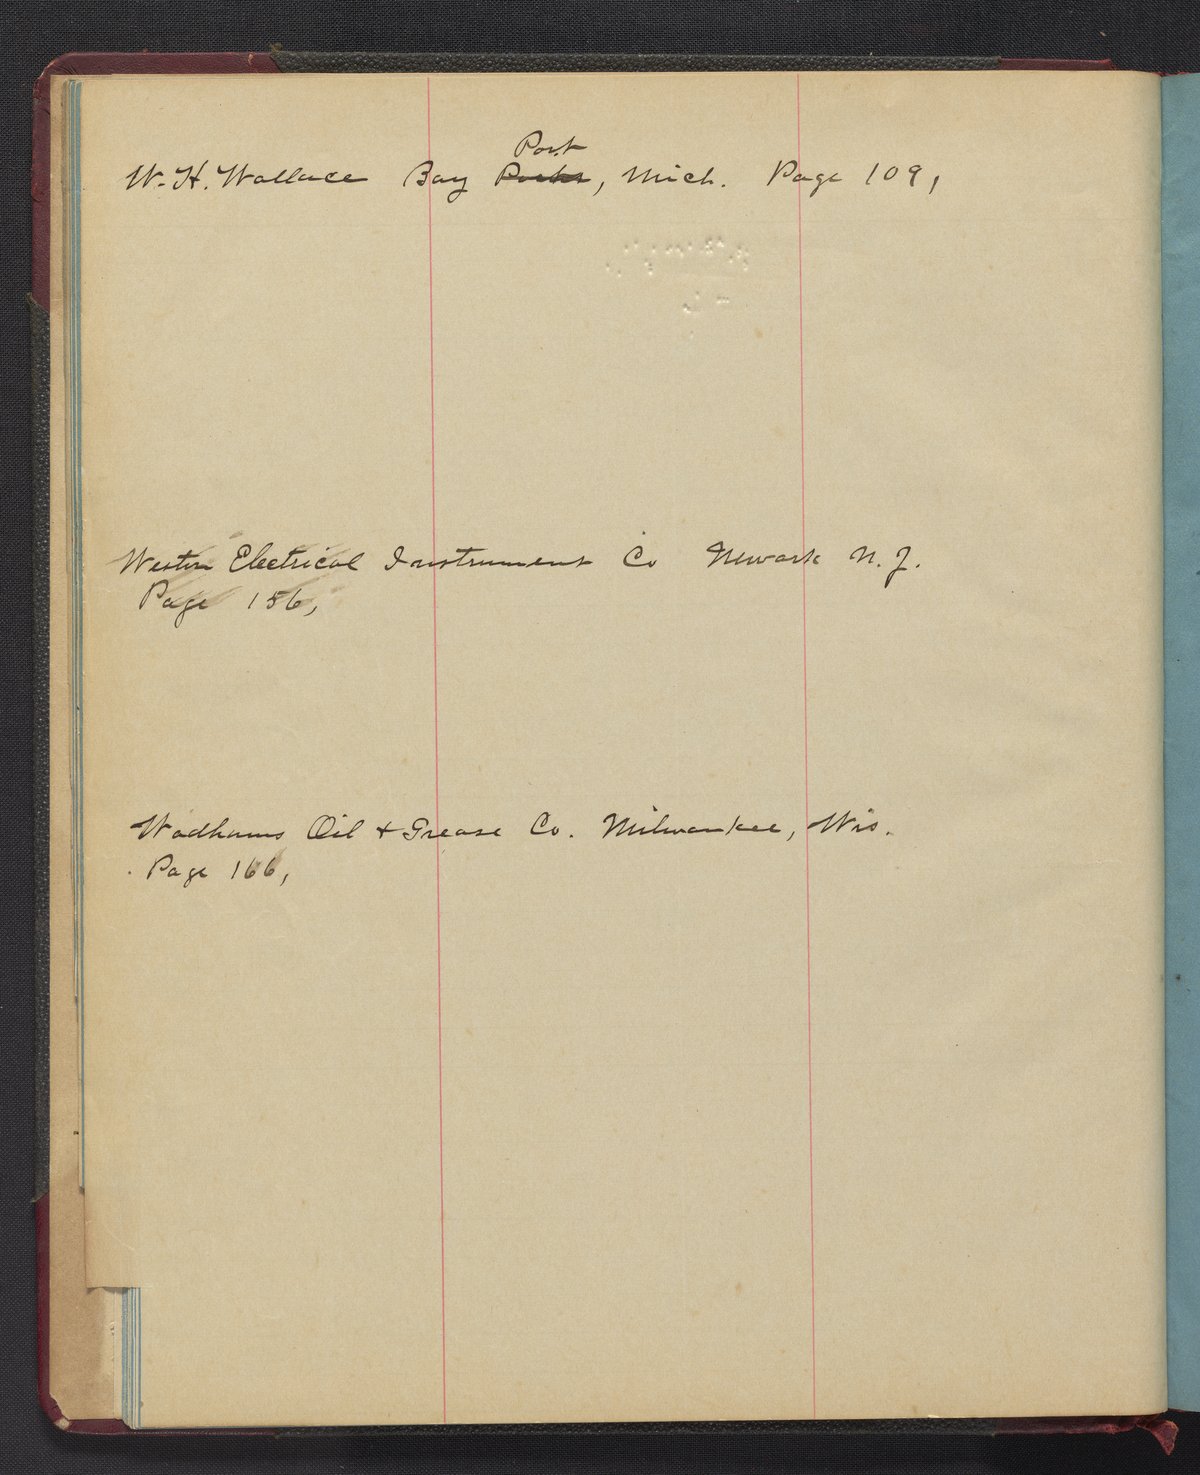 Port
W. H. Wallace Bay , Mich. Page 109,
Weston Electrical Instrument Co Newark N. J.
Page 156,
Wadhams Oil & Grease Co. Milwaukee, Wis.
Page 166,